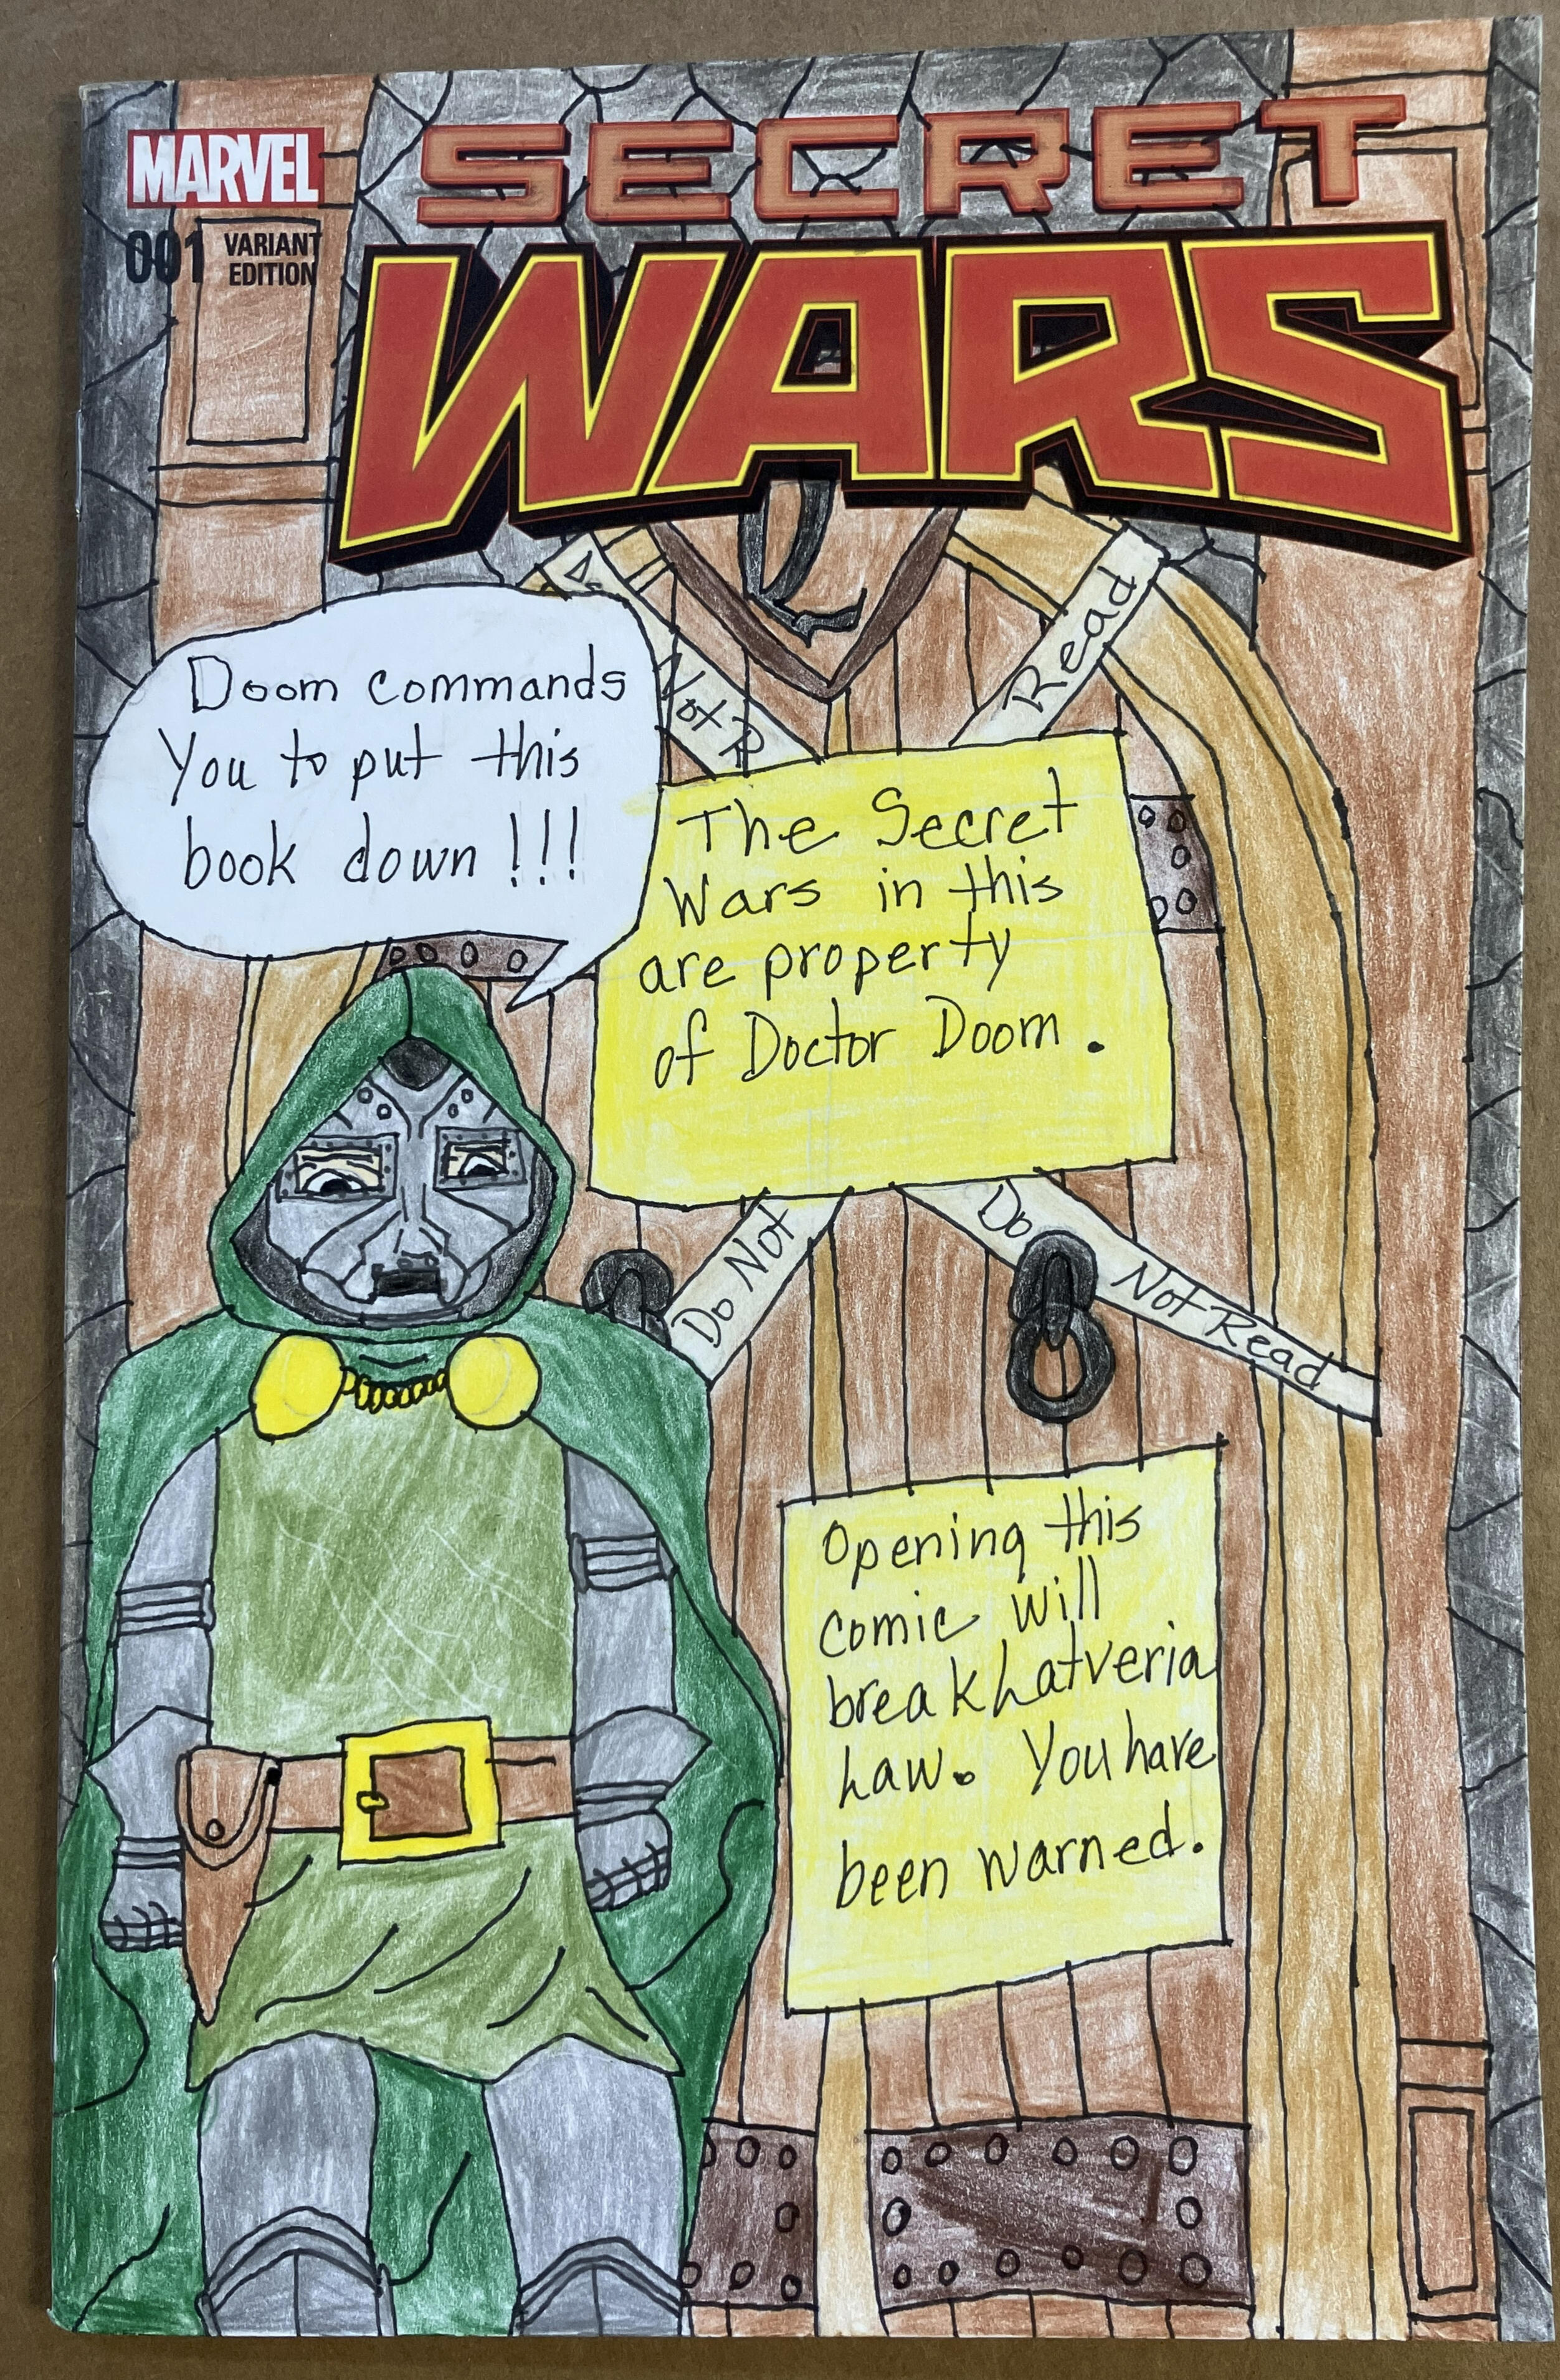 SECRET
MARVEL
WARS
001 VARIANT
EDITION
Do Not R
Read
Doom commands
You to put this
book down!!!
The Secret
Wars in this
are property
of Doctor Doom.
Do Not
Do Not Read
Opening this
comic will
break Latveria
Law. You have
been warned.